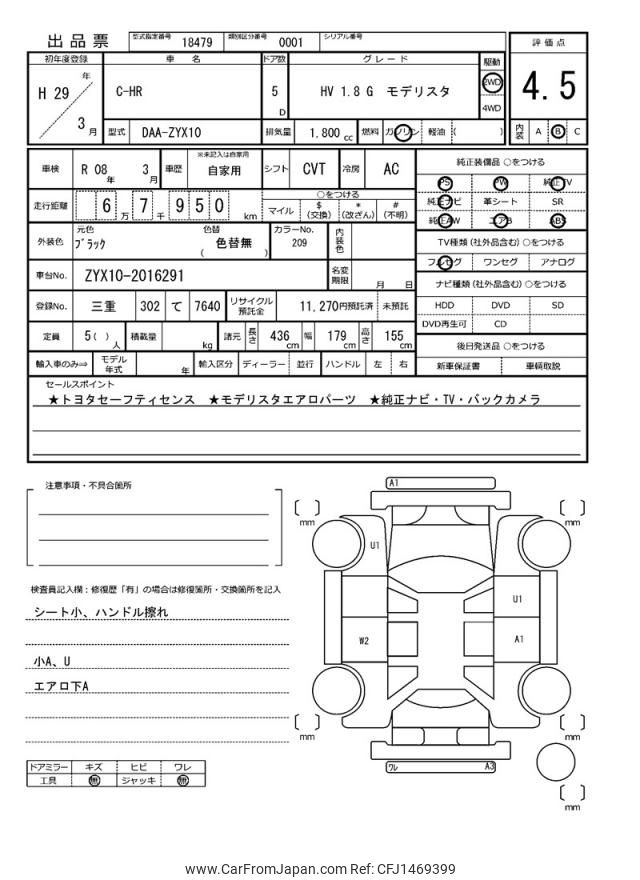 出品票 型式指定番号 18479 類別区分番号 0001 シリアル番号
初年度登録 車 名 ドア数 グレード 駆動 評価点
H 29 年 3 月 C-HR 5 D HV 1.8 G モデリスタ 2WD 4WD 4.5
型式 DAA-ZYX10 排気量 1,800 cc 燃料 ガソリン 軽油 ( ) 内装 A B C
車検 R 08 年 3 月 車歴 ※未記入は自家用 自家用 シフト CVT 冷房 AC
純正装備品 ○をつける
PS PW 純正TV
純正ナビ 革シート SR
純正AW エアB ABS
走行距離 6 万 7 千 9 5 0 km ○をつける マイル $ (交換) * (改ざん) # (不明)
外装色 元色 ブラック 色替 ( 色替無 ) カラーNo. 209 内装色
TV種類 (社外品含む) ○をつける
フルセグ ワンセグ アナログ
車台No. ZYX10-2016291 名変期限 月 日
ナビ種類 (社外品含む) ○をつける
HDD DVD SD
DVD再生可 CD
登録No. 三重 302 て 7640 リサイクル預託金 11,270円預託済 未預託
定員 5 ( ) 人 積載量 kg 諸元 長さ 436 cm 幅 179 cm 高さ 155 cm
後日発送品 ○をつける
新車保証書 車輌取説
輸入車のみ⇒ モデル年式 年 輸入区分 ディーラー 並行 ハンドル 左 右
セールスポイント
★トヨタセーフティセンス ★モデリスタエアロパーツ ★純正ナビ・TV・バックカメラ
注意事項・不具合箇所
検査員記入欄：修復歴「有」の場合は修復箇所・交換箇所を記入
シート小、ハンドル擦れ
小A、U
エアロ下A
ドアミラー キズ ヒビ ワレ
工具 無 ジャッキ 無
A1
mm
mm
U1
U1
W2
A1
mm
mm
ワレ A3
mm
www.CarFromJapan.com Ref: CFJ1469399